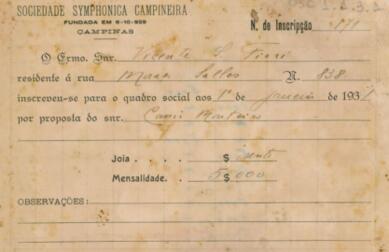 SOCIEDADE SYMPHONICA CAMPINEIRA
FUNDADA EM 6-10-929
CAMPINAS
N. de Inscripção
O Exmo. Snr. Vicente
residente á rua Salles N. 838
inscreveu-se para o quadro social aos 1º de Janeiro de 193
por proposta do snr. Monteiro
Joia $
Mensalidade. 5$000
OBSERVAÇÕES: